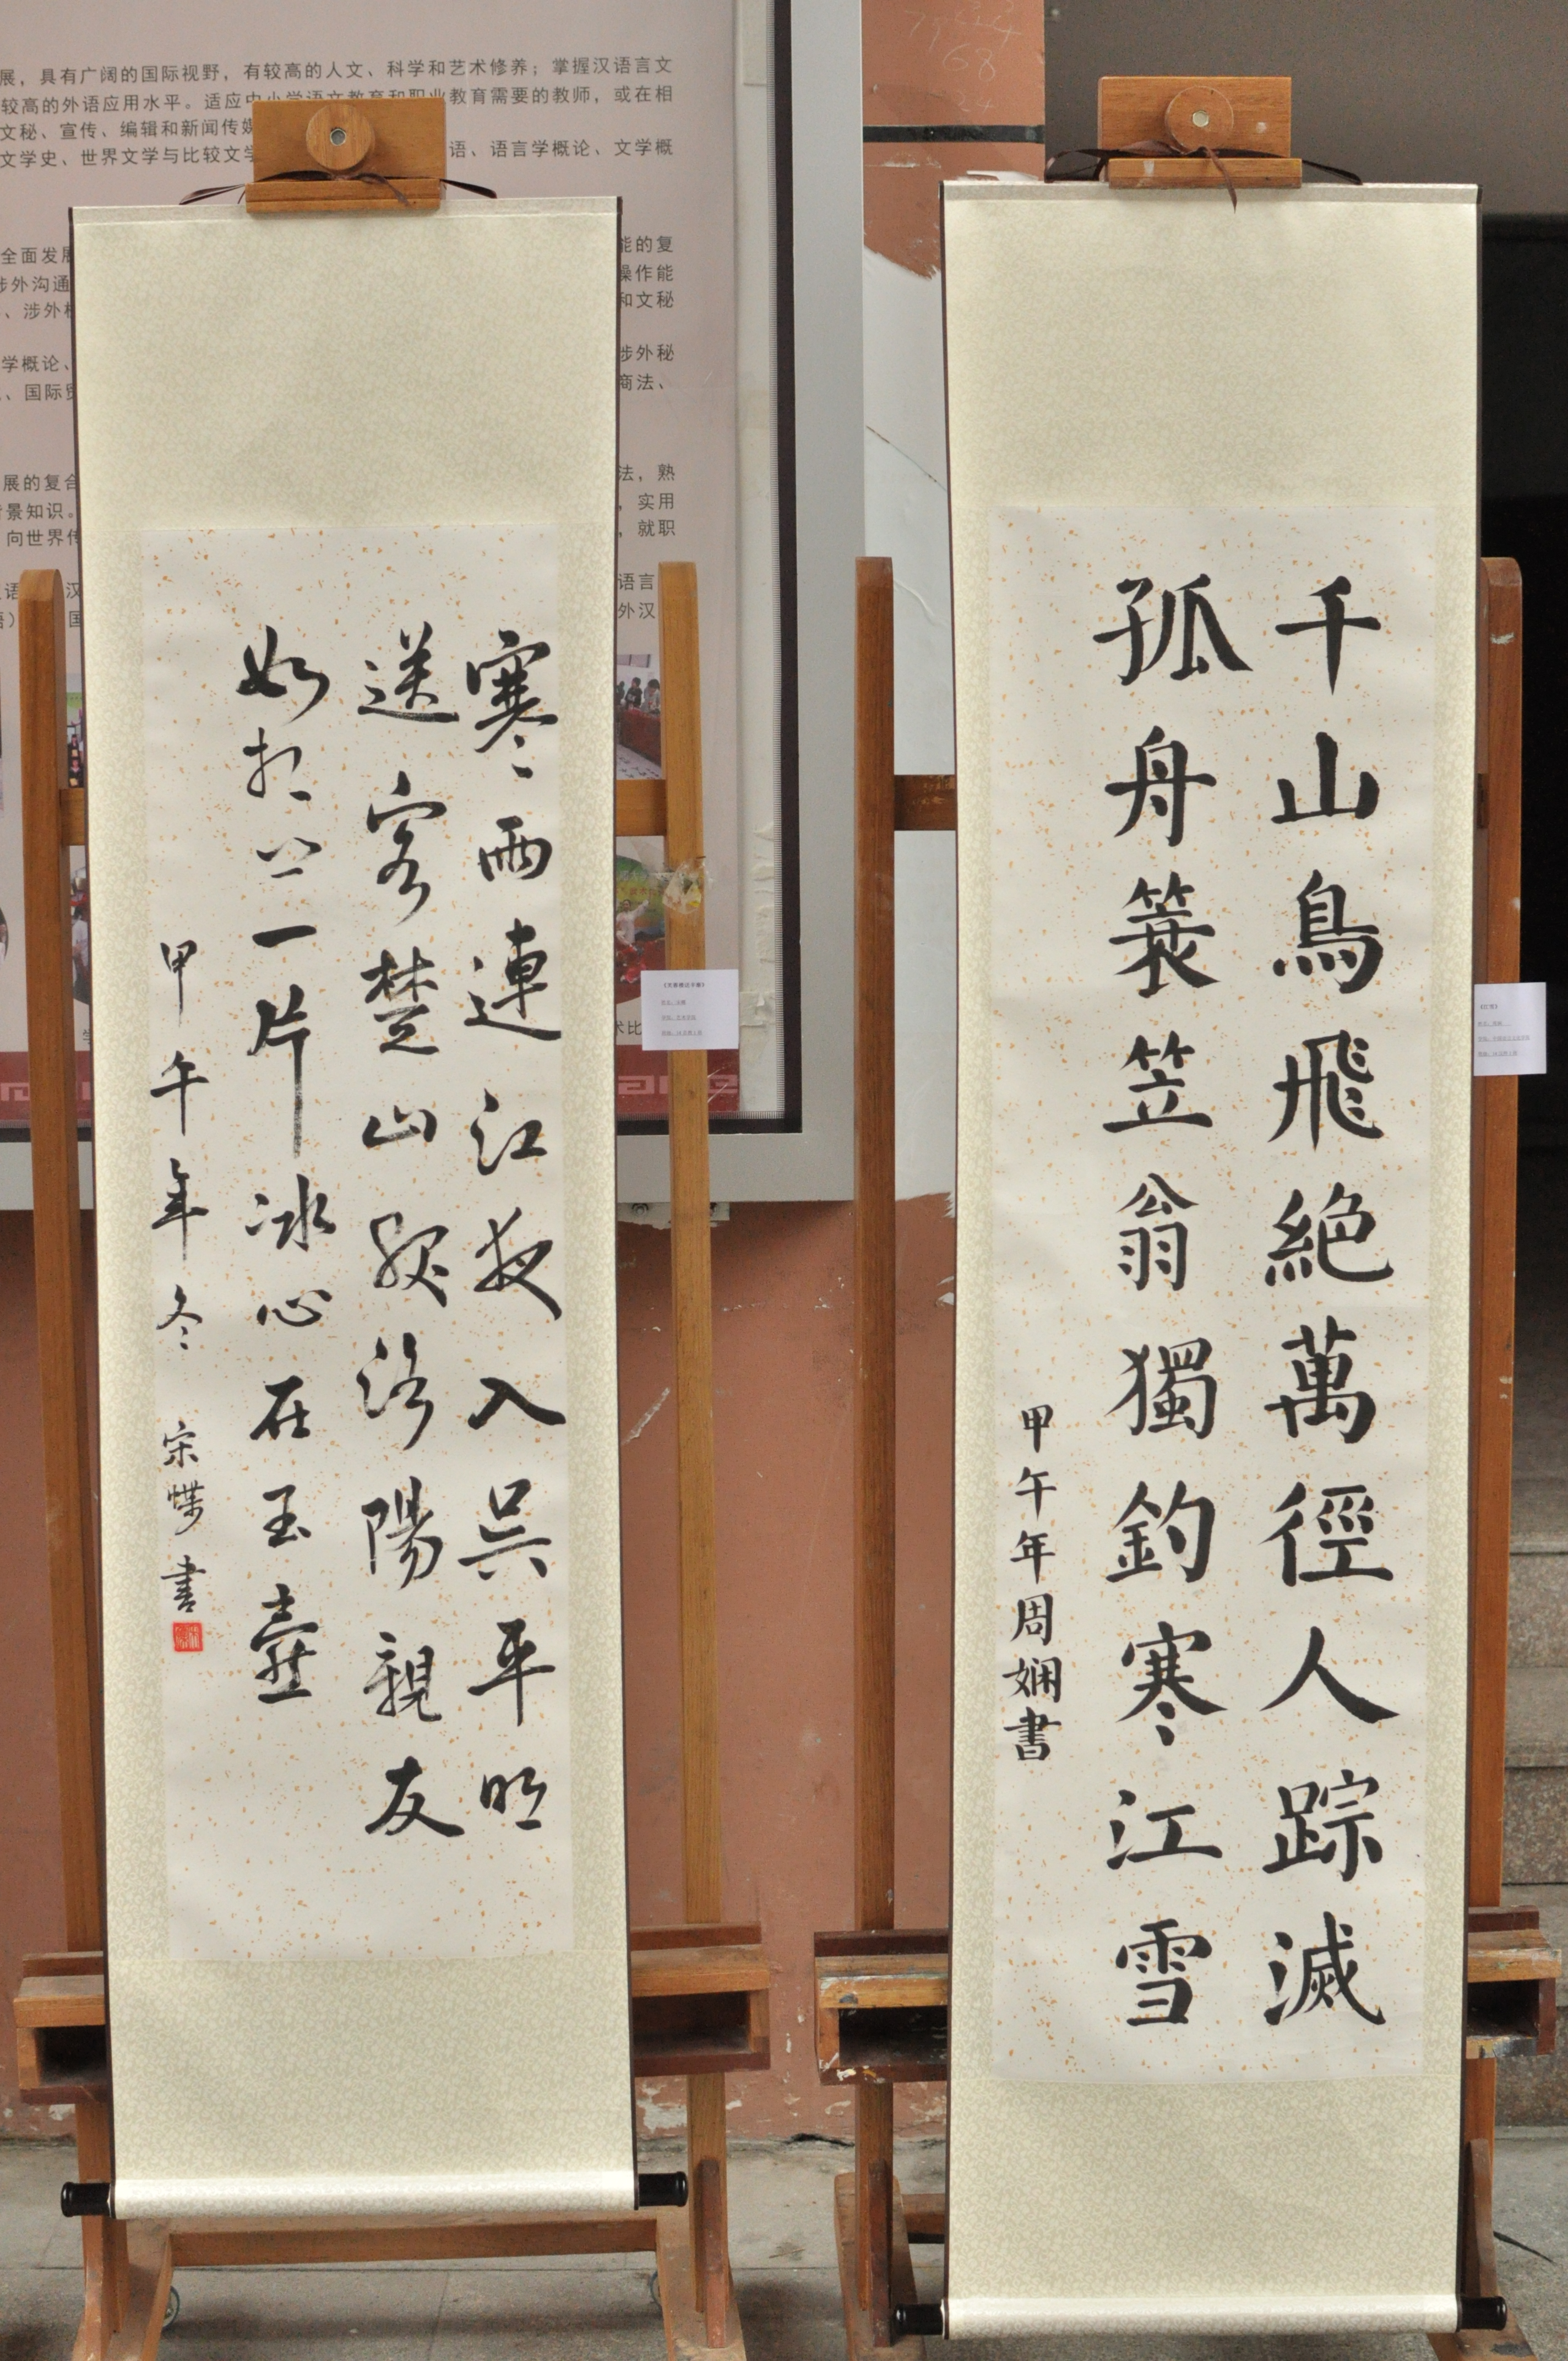 展，具有广阔的国际视野，有较高的人文、科学和艺术修养；掌握汉语言文
较高的外语应用水平。适应中小学语文教育和职业教育需要的教师，或在相
文秘、宣传、编辑和新闻传媒
文学史、世界文学与比较文学 语、语言学概论、文学概
全面发展 能的复
涉外沟通 操作能
、涉外 和文秘
学概论、 涉外秘
、国际贸 商法、
展的复合 法，熟
背景知识。 ，实用
向世界传 ，就职
语言
外汉
千山鳥飛絕萬徑人踪滅
孤舟簑笠翁獨釣寒江雪
甲午年周娴書
寒雨連江夜入吳平明
送客楚山孤洛陽親友
如相問一片冰心在玉壺
甲午年冬 宋蝶書